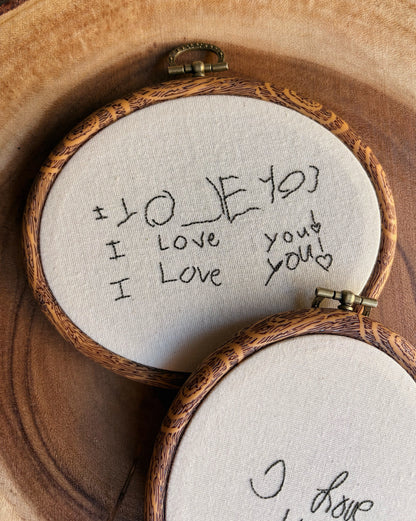 I LOVE YOU
I Love you!
I Love you!
I Love